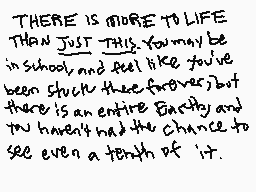 THERE IS MORE TO LIFE
THAN JUST THIS. You may be
in school, and feel like you've
been stuck there forever, but
there is an entire Earth, and
you haven't had the chance to
see even a tenth of it.